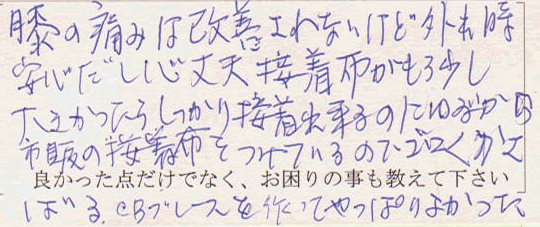 膝の痛みは改善されないけど外出時
安心だし心丈夫接着布がもう少し
大きかったらしっかり接着出来るのに
市販の接着布をつけているのでゴロゴロ
良かった点だけでなく、お困りの事も教えて下さい
ばる。CBブレースを作ってやっぱりよかった。